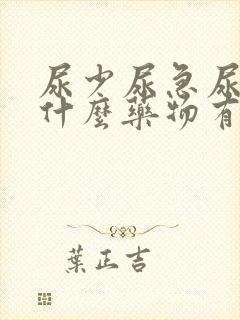 尿少尿急尿
什麼藥物有
葉正吉